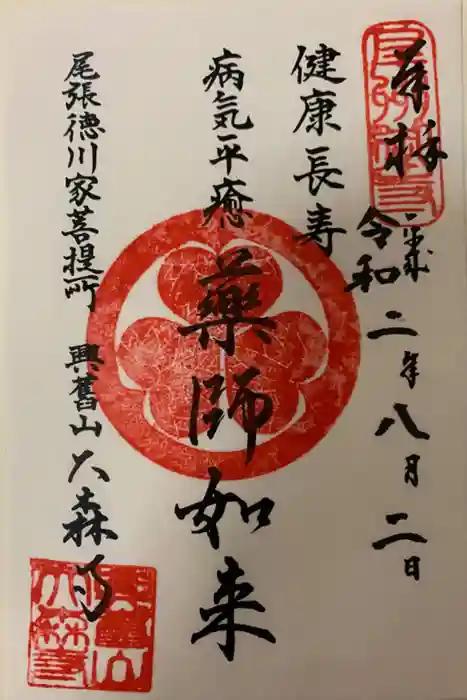 奉拝
令和二年八月二日
健康長寿
病気平癒
薬師如来
尾張徳川家菩提所 興舊山 大森寺